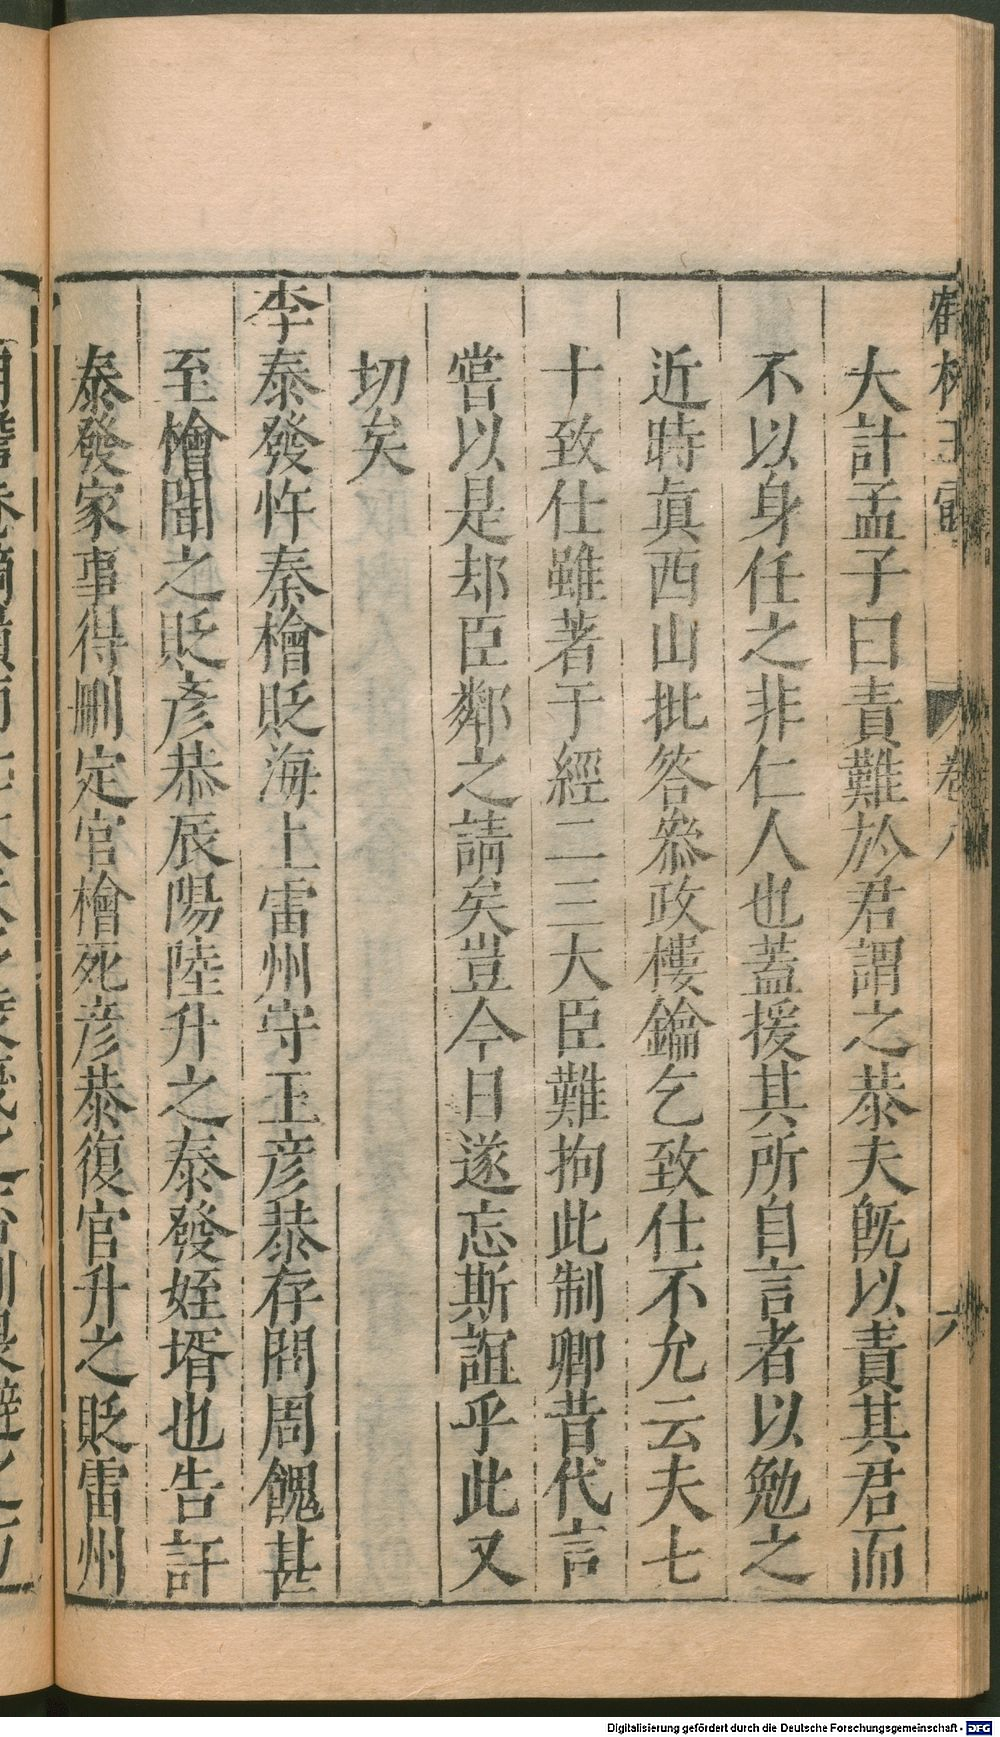 鶴林玉露
卷八
六
大計孟子曰責難於君謂之恭夫旣以責其君而
不以身任之非仁人也蓋援其所自言者以勉之
近時眞西山批答叅政樓鑰乞致仕不允云夫七
十致仕雖著于經二三大臣難拘此制卿昔代言
嘗以是却臣鄰之請矣豈今日遂忘斯誼乎此又
切矣
李泰發忤秦檜貶海上雷州守王彥恭存問周餽甚
至檜聞之貶彥恭辰陽陸升之泰發姪壻也告訐
泰發家事得刪定官檜死彥恭復官升之貶雷州
Digitalisierung gefördert durch die Deutsche Forschungsgemeinschaft - DFG